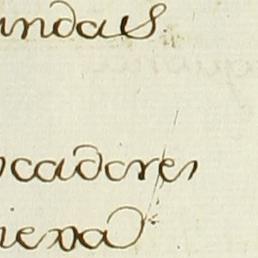 undais.
ocadores
iexa